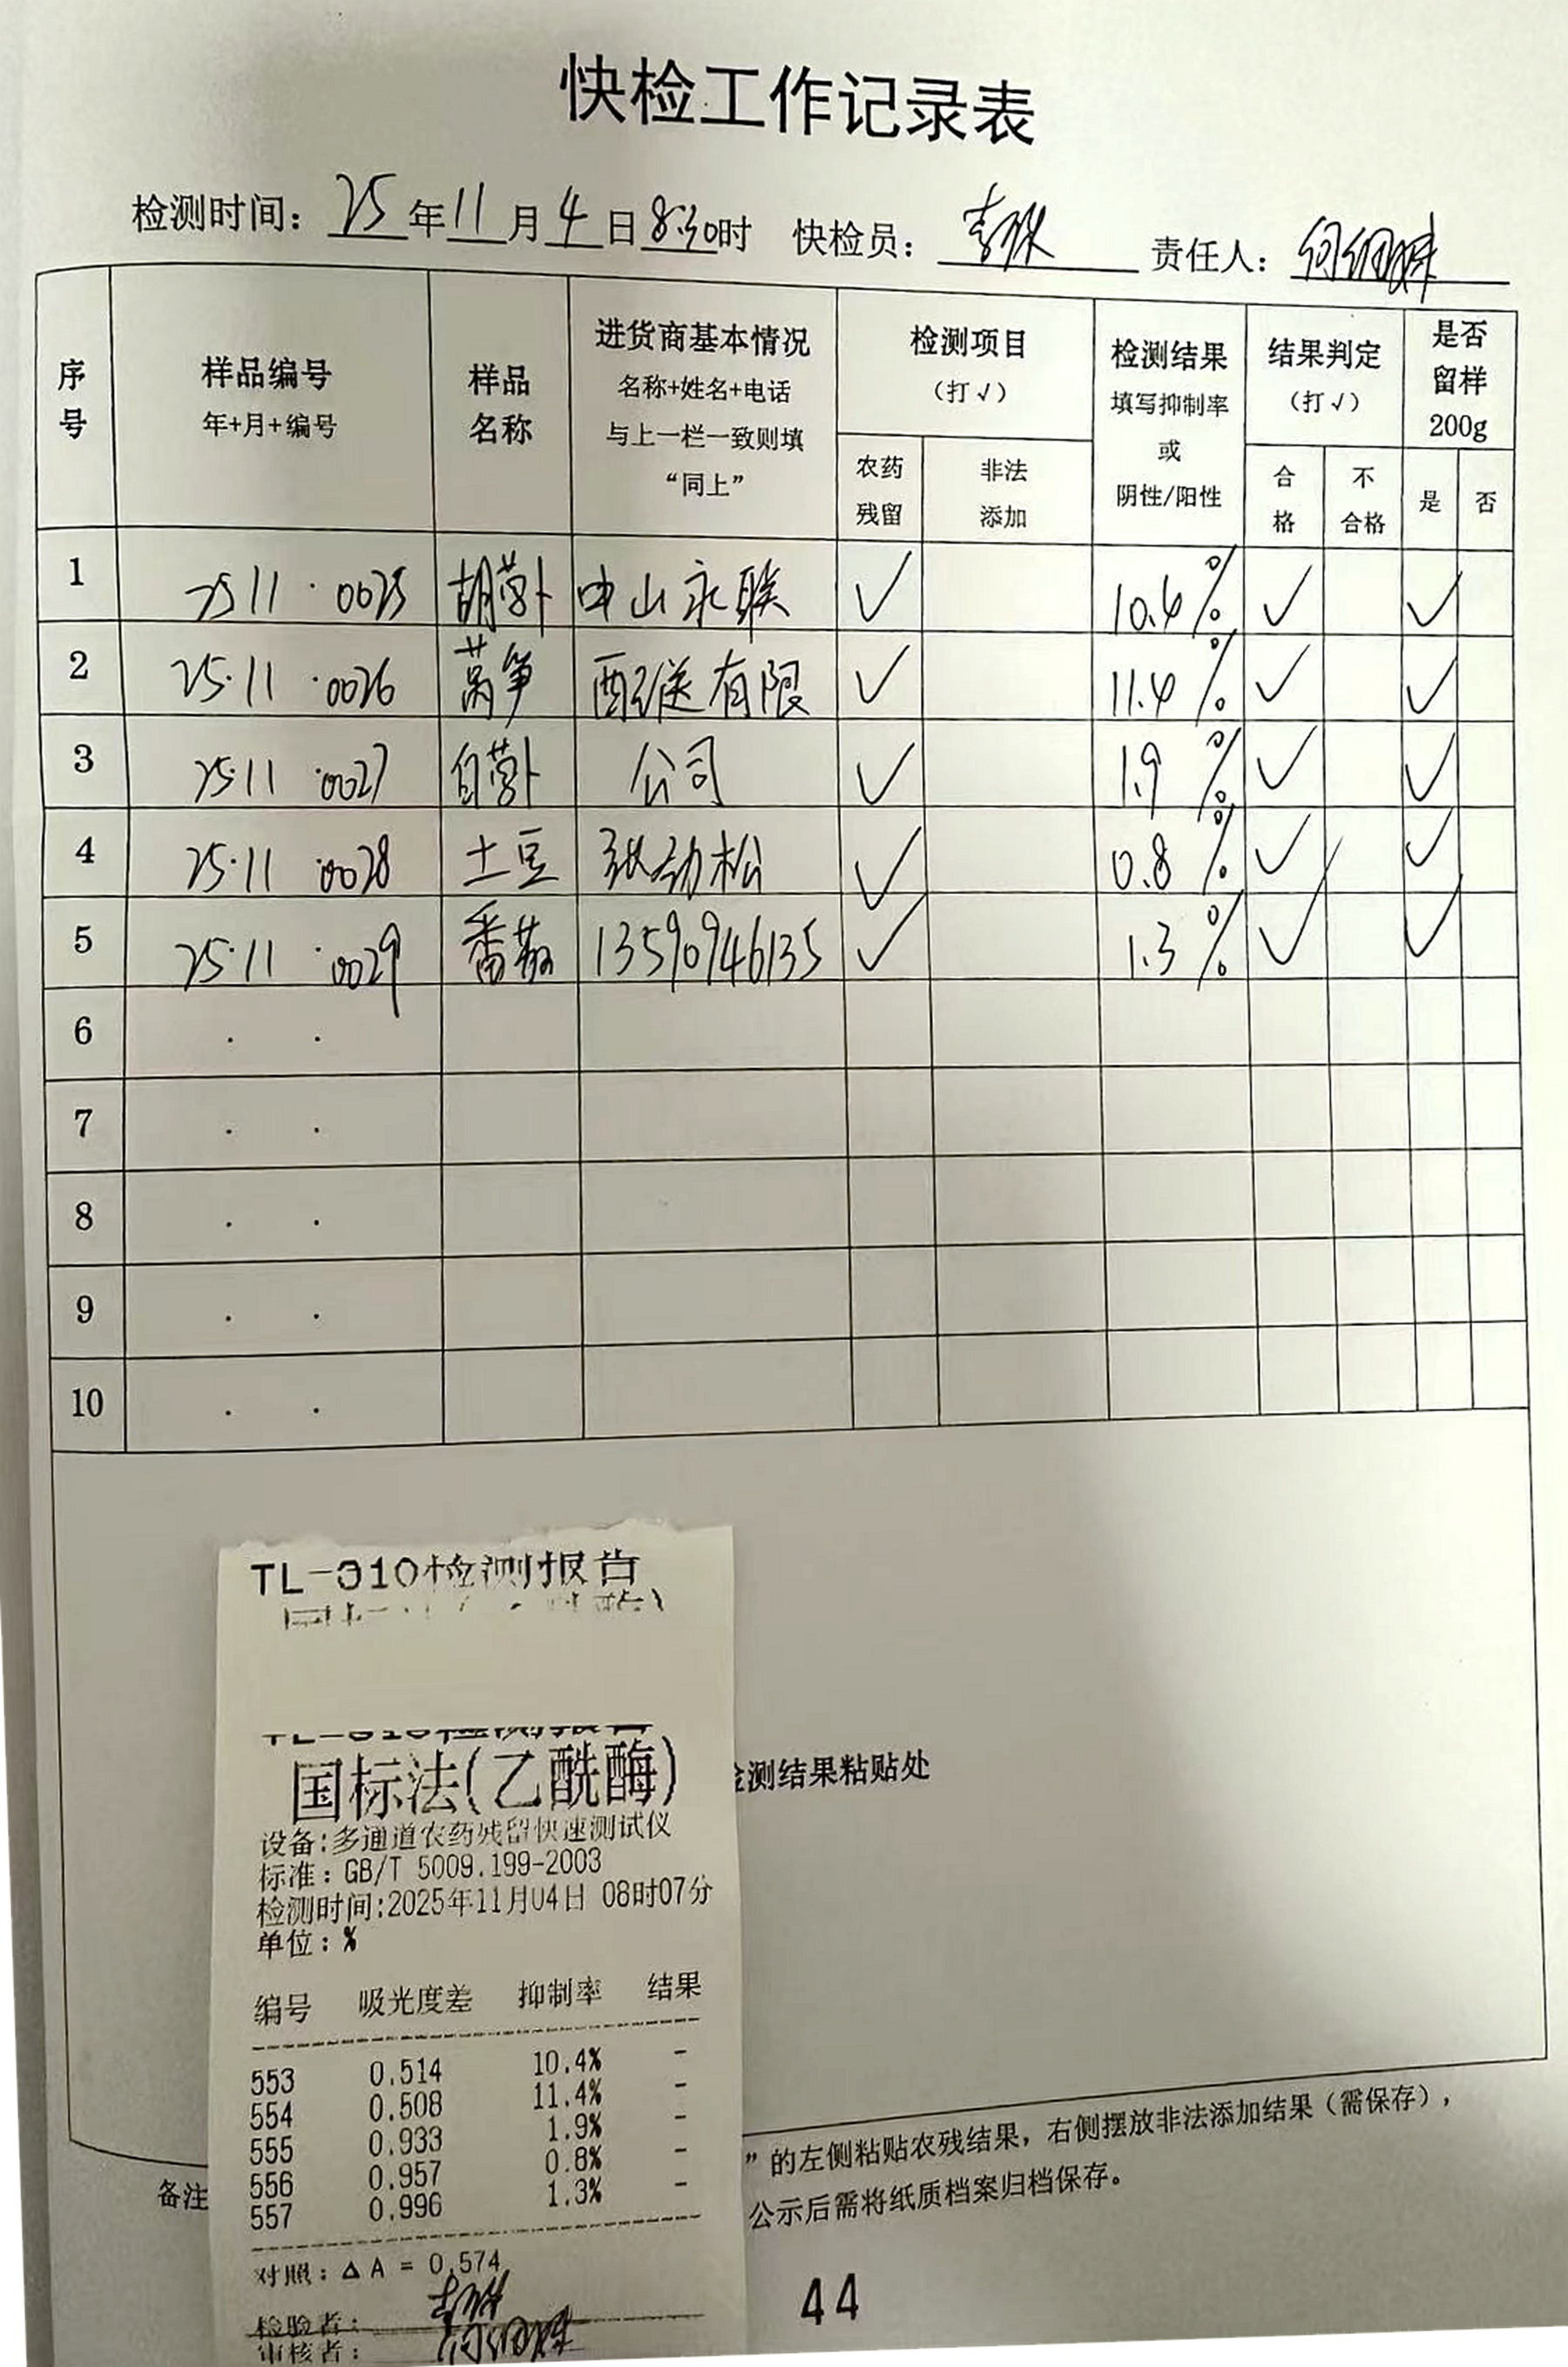 快检工作记录表
检测时间：25年11月4日8:30时 快检员： 责任人：
序号 样品编号 年+月+编号 样品名称 进货商基本情况 名称+姓名+电话 与上一栏一致则填“同上” 检测项目（打√） 农药残留 非法添加 检测结果 填写抑制率或阴性/阳性 结果判定（打√） 合格 不合格 是否留样200g 是 否
1 25·11·0025 胡萝卜 中山永联 √ 10.4% √ √
2 25·11·0026 莴笋 配送有限 √ 11.4% √ √
3 25·11·0027 白萝卜 公司 √ 1.9% √ √
4 25·11·0028 土豆 张劲松 √ 0.8% √ √
5 25·11·0029 番茄 13590946135 √ 1.3% √ √
6 · ·
7 · ·
8 · ·
9 · ·
10 · ·
TL-310检测报告
TL-310检测报告
国标法(乙酰酶)
检测结果粘贴处
设备:多通道农药残留快速测试仪
标准：GB/T 5009.199-2003
检测时间:2025年11月04日 08时07分
单位：%
编号 吸光度差 抑制率 结果
553 0.514 10.4% -
554 0.508 11.4% -
555 0.933 1.9% -
556 0.957 0.8% -
557 0.996 1.3% -
对照：△A = 0.574
检验者：
审核者：
备注
”的左侧粘贴农残结果，右侧摆放非法添加结果（需保存），
公示后需将纸质档案归档保存。
44